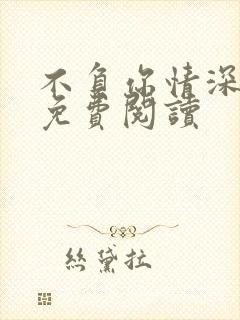 不負你情深
免費閱讀
絲黛拉